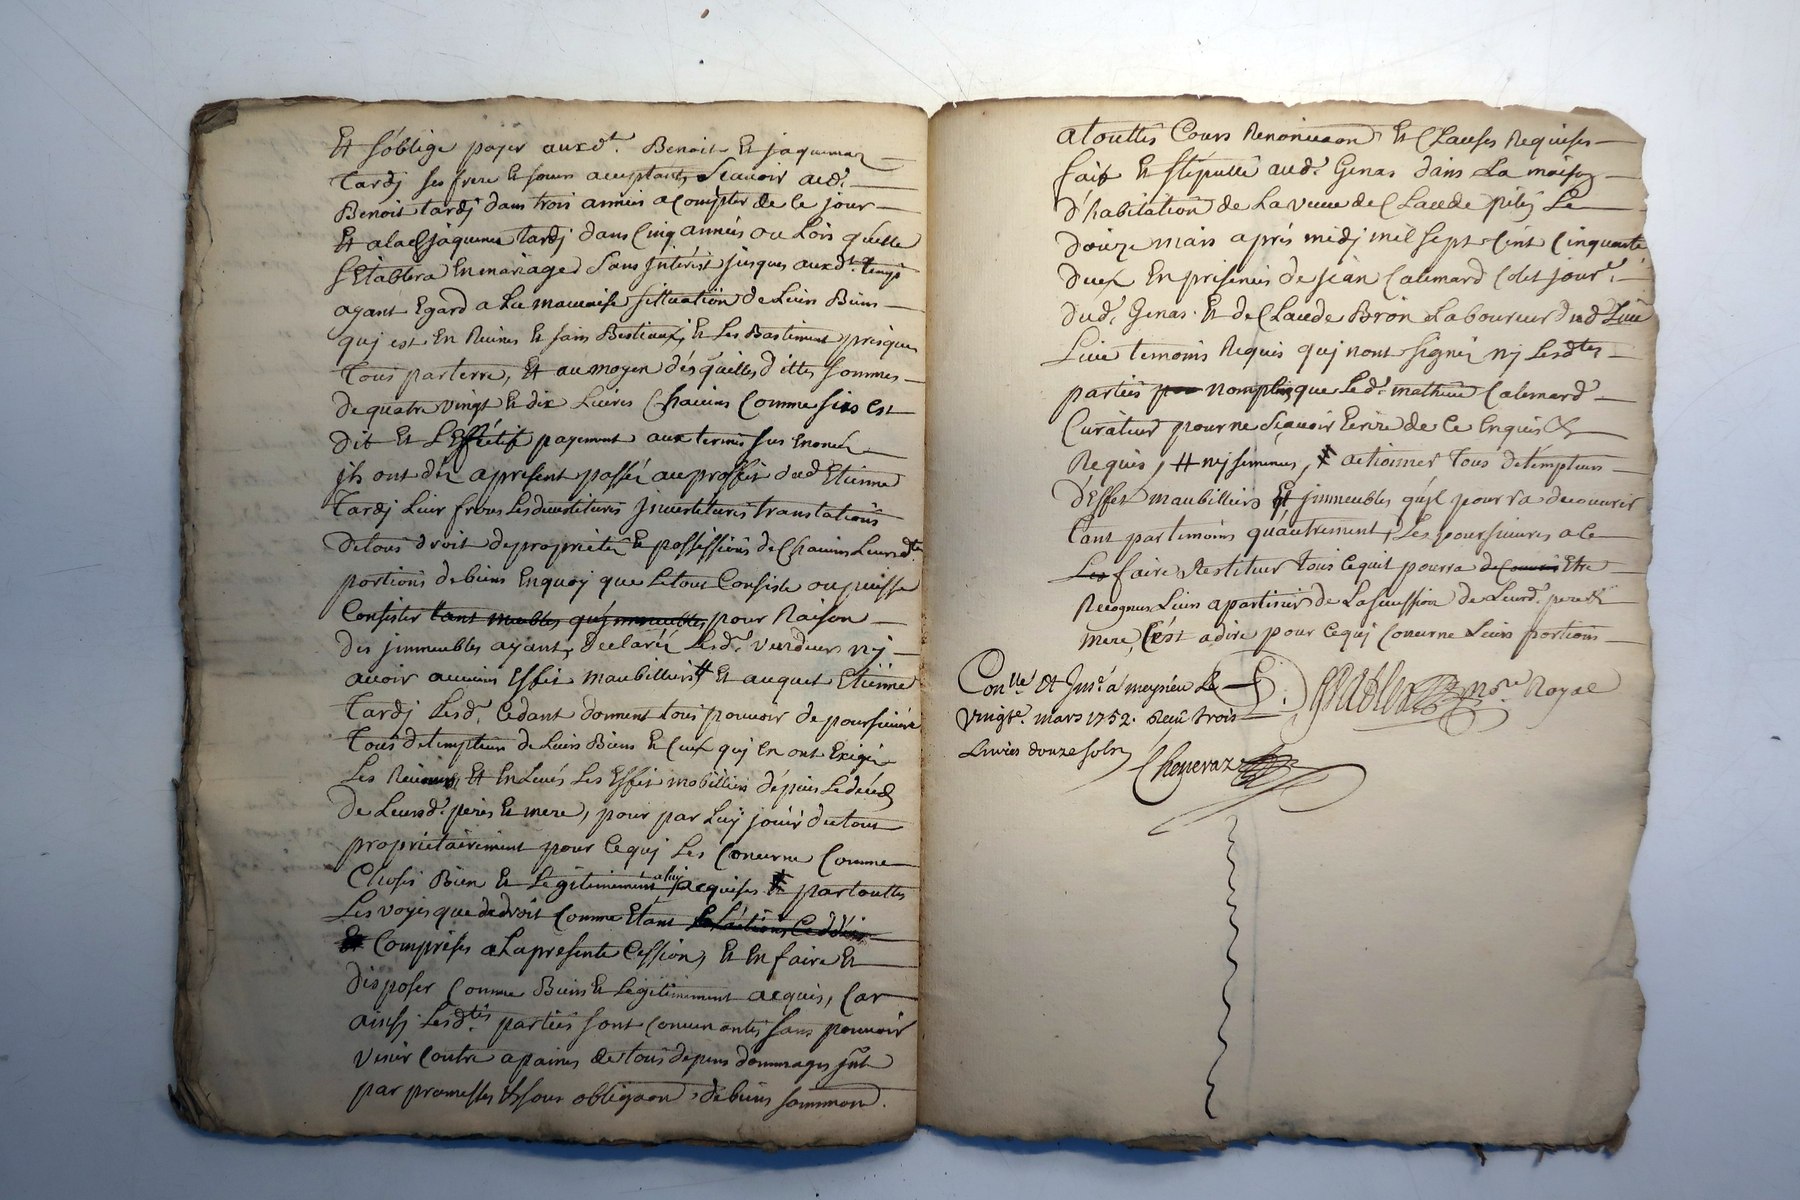 Et s'oblige payer auxd.t Benoit Et jaquemaz
Tardj ses frere Et soeur acceptants, Sçavoir aud.
Benoit tardj dans trois années a Compter de Ce jour
Et a lad. jaquemaz tardj dans Cinq années ou Lors qu'elle
S'Etablira En mariage Sans Jntérist jusques auxd.ts temps
ayant Egard a La mauvaise sittuation de Leurs Biens
quj est En Ruines Et sans Bestiaux, Et Les Bastiments presques
Tous par terre, Et au moyen désquelles d ittes sommes
De quatre vingt Et dix Livres Chacuns Comme sus est
Dit Et L'Effectif payement aux termes sus Enoncés
jls ont déz apresent passé au proffit dud. Etienne
Tardj Leur frere Les devestitures Jnvestitures translations
De tous droit de propriété Et possessions de Chacuns Leursd.tes
portions de biens Enquoy que Le tout Consiste ou puisse
Consister tant meubles qu'jmmeubles pour Raison
Des jmmeubles ayants Declaréz Lesd. vendeurs nj
avoir aucuns Effet maubilliers # Et auquel Etienne
Tardj Lesd. Cedant donnent tous pouvoir de poursuivre
Tous detempteur de Leurs Biens Et Ceux quj En ont Exigé
Les Revenus, Et Enlevés Les Effet mobilliers dépuis Le décéd
De Leursd. peres Et mere, pour par Luy jouir du tout
propriétairement pour Cequj Les Concerne Comme
Choses Bien Et Legitimement a luy acquises Et par touttes
Les voyes que de droit Comme Etant
Et Comprises a La presente Cession, Et En faire Et
Disposer Comme Biens Et Legitimement acquis, Car
ainsj Lesd.tes parties sont Convenantes sans pouvoir
venir Contre a paines de tous depens dommages Jnt
par promesses Et sous obligaon de biens
a touttes Cours Renonciaon Et Clauses Requises
fait Et stipullé aud. Genas dans La maison
d'habitation de La veuve de Claude Le
Douze mars aprés midj mil sept Cent Cinquante
Deux En presences de jean Calemard jour.
dud. Genas. Et de Claude Bron Laboureur dud.
Lieu temoins Requis quj nont signéz nj Lesd.tes
parties non plus que Led. mathieu Calemard
Curateur pour ne Sçavoir Ecrire de Ce Enquis Et
Requis, # nj semences, # actionner tous detempteurs
D'Effet maubilliers Et jmmeubles qu'jl pourra decouvrir
tant par temoins qu'autrement, Les poursuivres a le
Les faire Restituer tous Ce quil pourra decouvrir Etre
Recognus Leurs apartenir de La sucession de Leursd. pere Et
mere, C'est a dire pour Cequj Concerne Leurs portions
Con.lle Et Jns.é a meyzieu Le
vingt.e mars 1752. Reçu trois
Livres douze sols
no.re Royal
Cheneraz